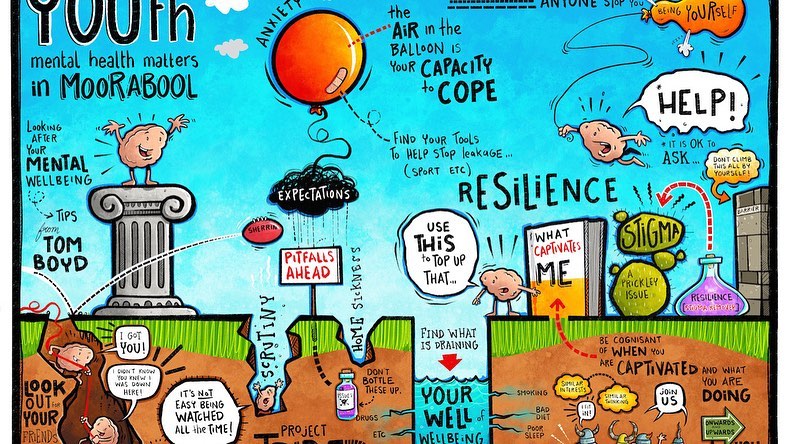 YOUth
mental health matters
in MOORABOOL
LOOKING
AFTER
YOUR
MENTAL
WELLBEING
TIPS
from
TOM
BOYD
ANXIETY
the
AIR in the
BALLOON is
YOUR CAPACITY
to COPE
FIND YOUR TOOLS
TO HELP STOP LEAKAGE...
(SPORT ETC)
ANYONE STOP YOU
BEING YOURSELF
HELP!
* IT IS OK TO
ASK...
DON'T CLIMB
THIS ALL BY
YOURSELF!
BARRIER
EXPECTATIONS
SHERRIN
PITFALLS
AHEAD
RESILIENCE
USE
THIS
to TOP UP
THAT...
WHAT
CAPTIVATES
ME
STIGMA
A
PRICKLEY
ISSUE
RESILIENCE
STIGMA REMOVER
SCRUTINY
HOME SICKNESS
I GOT
YOU!
I DIDN'T KNOW
YOU KNEW I
WAS DOWN
HERE!
LOOK
OUT FOR
YOUR
FRIENDS
IT'S NOT
EASY BEING
WATCHED
ALL the TIME!
DON'T
BOTTLE
THESE UP.
ISSUES
DRUGS
ETC
PROJECT
FIND WHAT
IS DRAINING
YOUR
WELL of
WELLBEING
SMOKING
BAD
DIET
POOR
SLEEP
BE COGNISANT
OF WHEN YOU
ARE CAPTIVATED AND WHAT
YOU ARE
DOING
SIMILAR
INTERESTS
SIMILAR
THINKING
HI!
JOIN
US
ONWARDS
UPWARDS